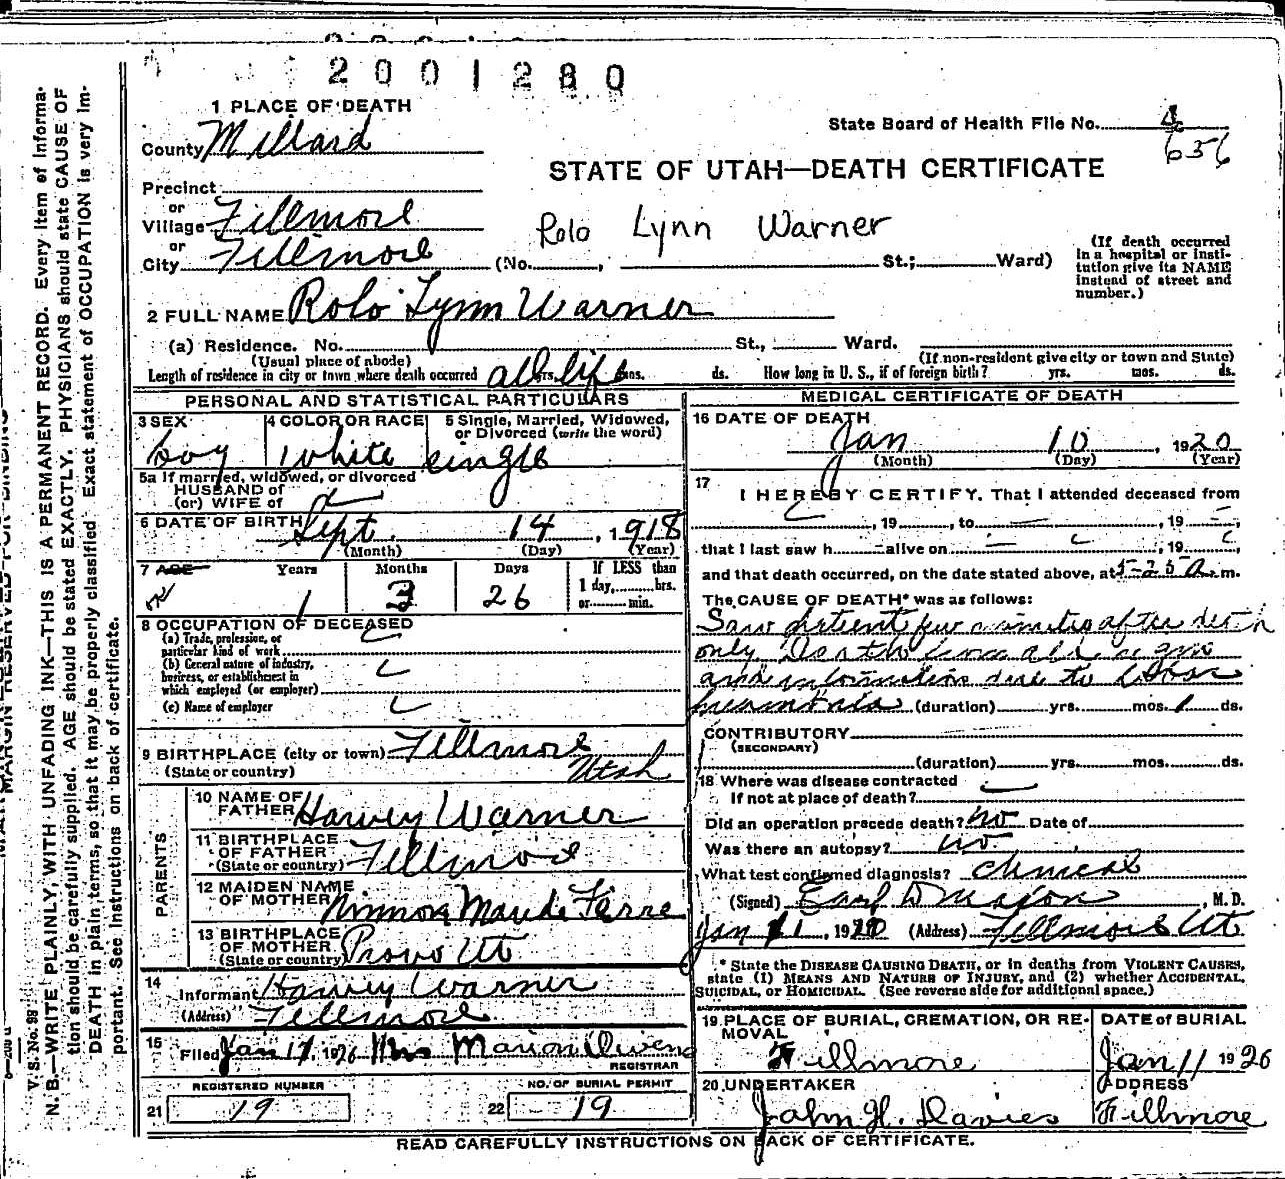 2001280
1 PLACE OF DEATH
County Millard
State Board of Health File No. 4
636
STATE OF UTAH—DEATH CERTIFICATE
Precinct
or
Village Fillmore
Rolo Lynn Warner
or
City Fillmore (No. , St.; Ward)
(If death occurred in a hospital or institution give its NAME instead of street and number.)
2 FULL NAME Rolo Lynn Warner
(a) Residence. No. St., Ward.
(Usual place of abode) (If non-resident give city or town and State)
Length of residence in city or town where death occurred all life yrs. mos. ds. How long in U. S., if of foreign birth? yrs. mos. ds.
PERSONAL AND STATISTICAL PARTICULARS
3 SEX 4 COLOR OR RACE 5 Single, Married, Widowed, or Divorced (write the word)
boy white single
5a If married, widowed, or divorced
HUSBAND of
(or) WIFE of
6 DATE OF BIRTH Sept. 14, 1918
(Month) (Day) (Year)
7 AGE Years Months Days If LESS than
1 day, hrs.
or min.
1 3 26
8 OCCUPATION OF DECEASED
(a) Trade, profession, or
particular kind of work
(b) General nature of industry,
business, or establishment in
which employed (or employer)
(c) Name of employer
9 BIRTHPLACE (city or town) Fillmore
(State or country) Utah
PARENTS
10 NAME OF
FATHER Harvey Warner
11 BIRTHPLACE
OF FATHER
(State or country) Fillmore
12 MAIDEN NAME
OF MOTHER Maude Farre
13 BIRTHPLACE
OF MOTHER
(State or country) Provo Ut
14
Informant Harvey Warner
(Address) Fillmore
15
Filed Jan 17, 1920 Mrs Marion Owens
REGISTRAR
REGISTERED NUMBER
21 19
NO. OF BURIAL PERMIT
22 19
MEDICAL CERTIFICATE OF DEATH
16 DATE OF DEATH
Jan 10, 1920
(Month) (Day) (Year)
17
I HEREBY CERTIFY, That I attended deceased from
, 19 , to , 19 ,
that I last saw h alive on , 19 ,
and that death occurred, on the date stated above, at 5-25 a. m.
The CAUSE OF DEATH* was as follows:
Saw patient few minutes after death
only. Death
and information due to Lobar
pneumonia (duration) yrs. mos. 1 ds.
CONTRIBUTORY
(SECONDARY)
(duration) yrs. mos. ds.
18 Where was disease contracted
If not at place of death?
Did an operation precede death? no Date of
Was there an autopsy? no
What test confirmed diagnosis? clinical
(Signed) , M. D.
Jan 11, 1920 (Address) Fillmore Ut
* State the DISEASE CAUSING DEATH, or in deaths from VIOLENT CAUSES,
state (1) MEANS AND NATURE OF INJURY, and (2) whether ACCIDENTAL,
SUICIDAL, or HOMICIDAL. (See reverse side for additional space.)
19 PLACE OF BURIAL, CREMATION, OR REMOVAL DATE of BURIAL
Fillmore Jan 11 1920
20 UNDERTAKER ADDRESS
John H. Davies Fillmore
READ CAREFULLY INSTRUCTIONS ON BACK OF CERTIFICATE.
MARGIN RESERVED FOR BINDING
V. S. No. 99
N. B.—WRITE PLAINLY, WITH UNFADING INK—THIS IS A PERMANENT RECORD. Every item of informa-
tion should be carefully supplied. AGE should be stated EXACTLY. PHYSICIANS should state CAUSE OF
DEATH in plain terms, so that it may be properly classified. Exact statement of OCCUPATION is very im-
portant. See instructions on back of certificate.